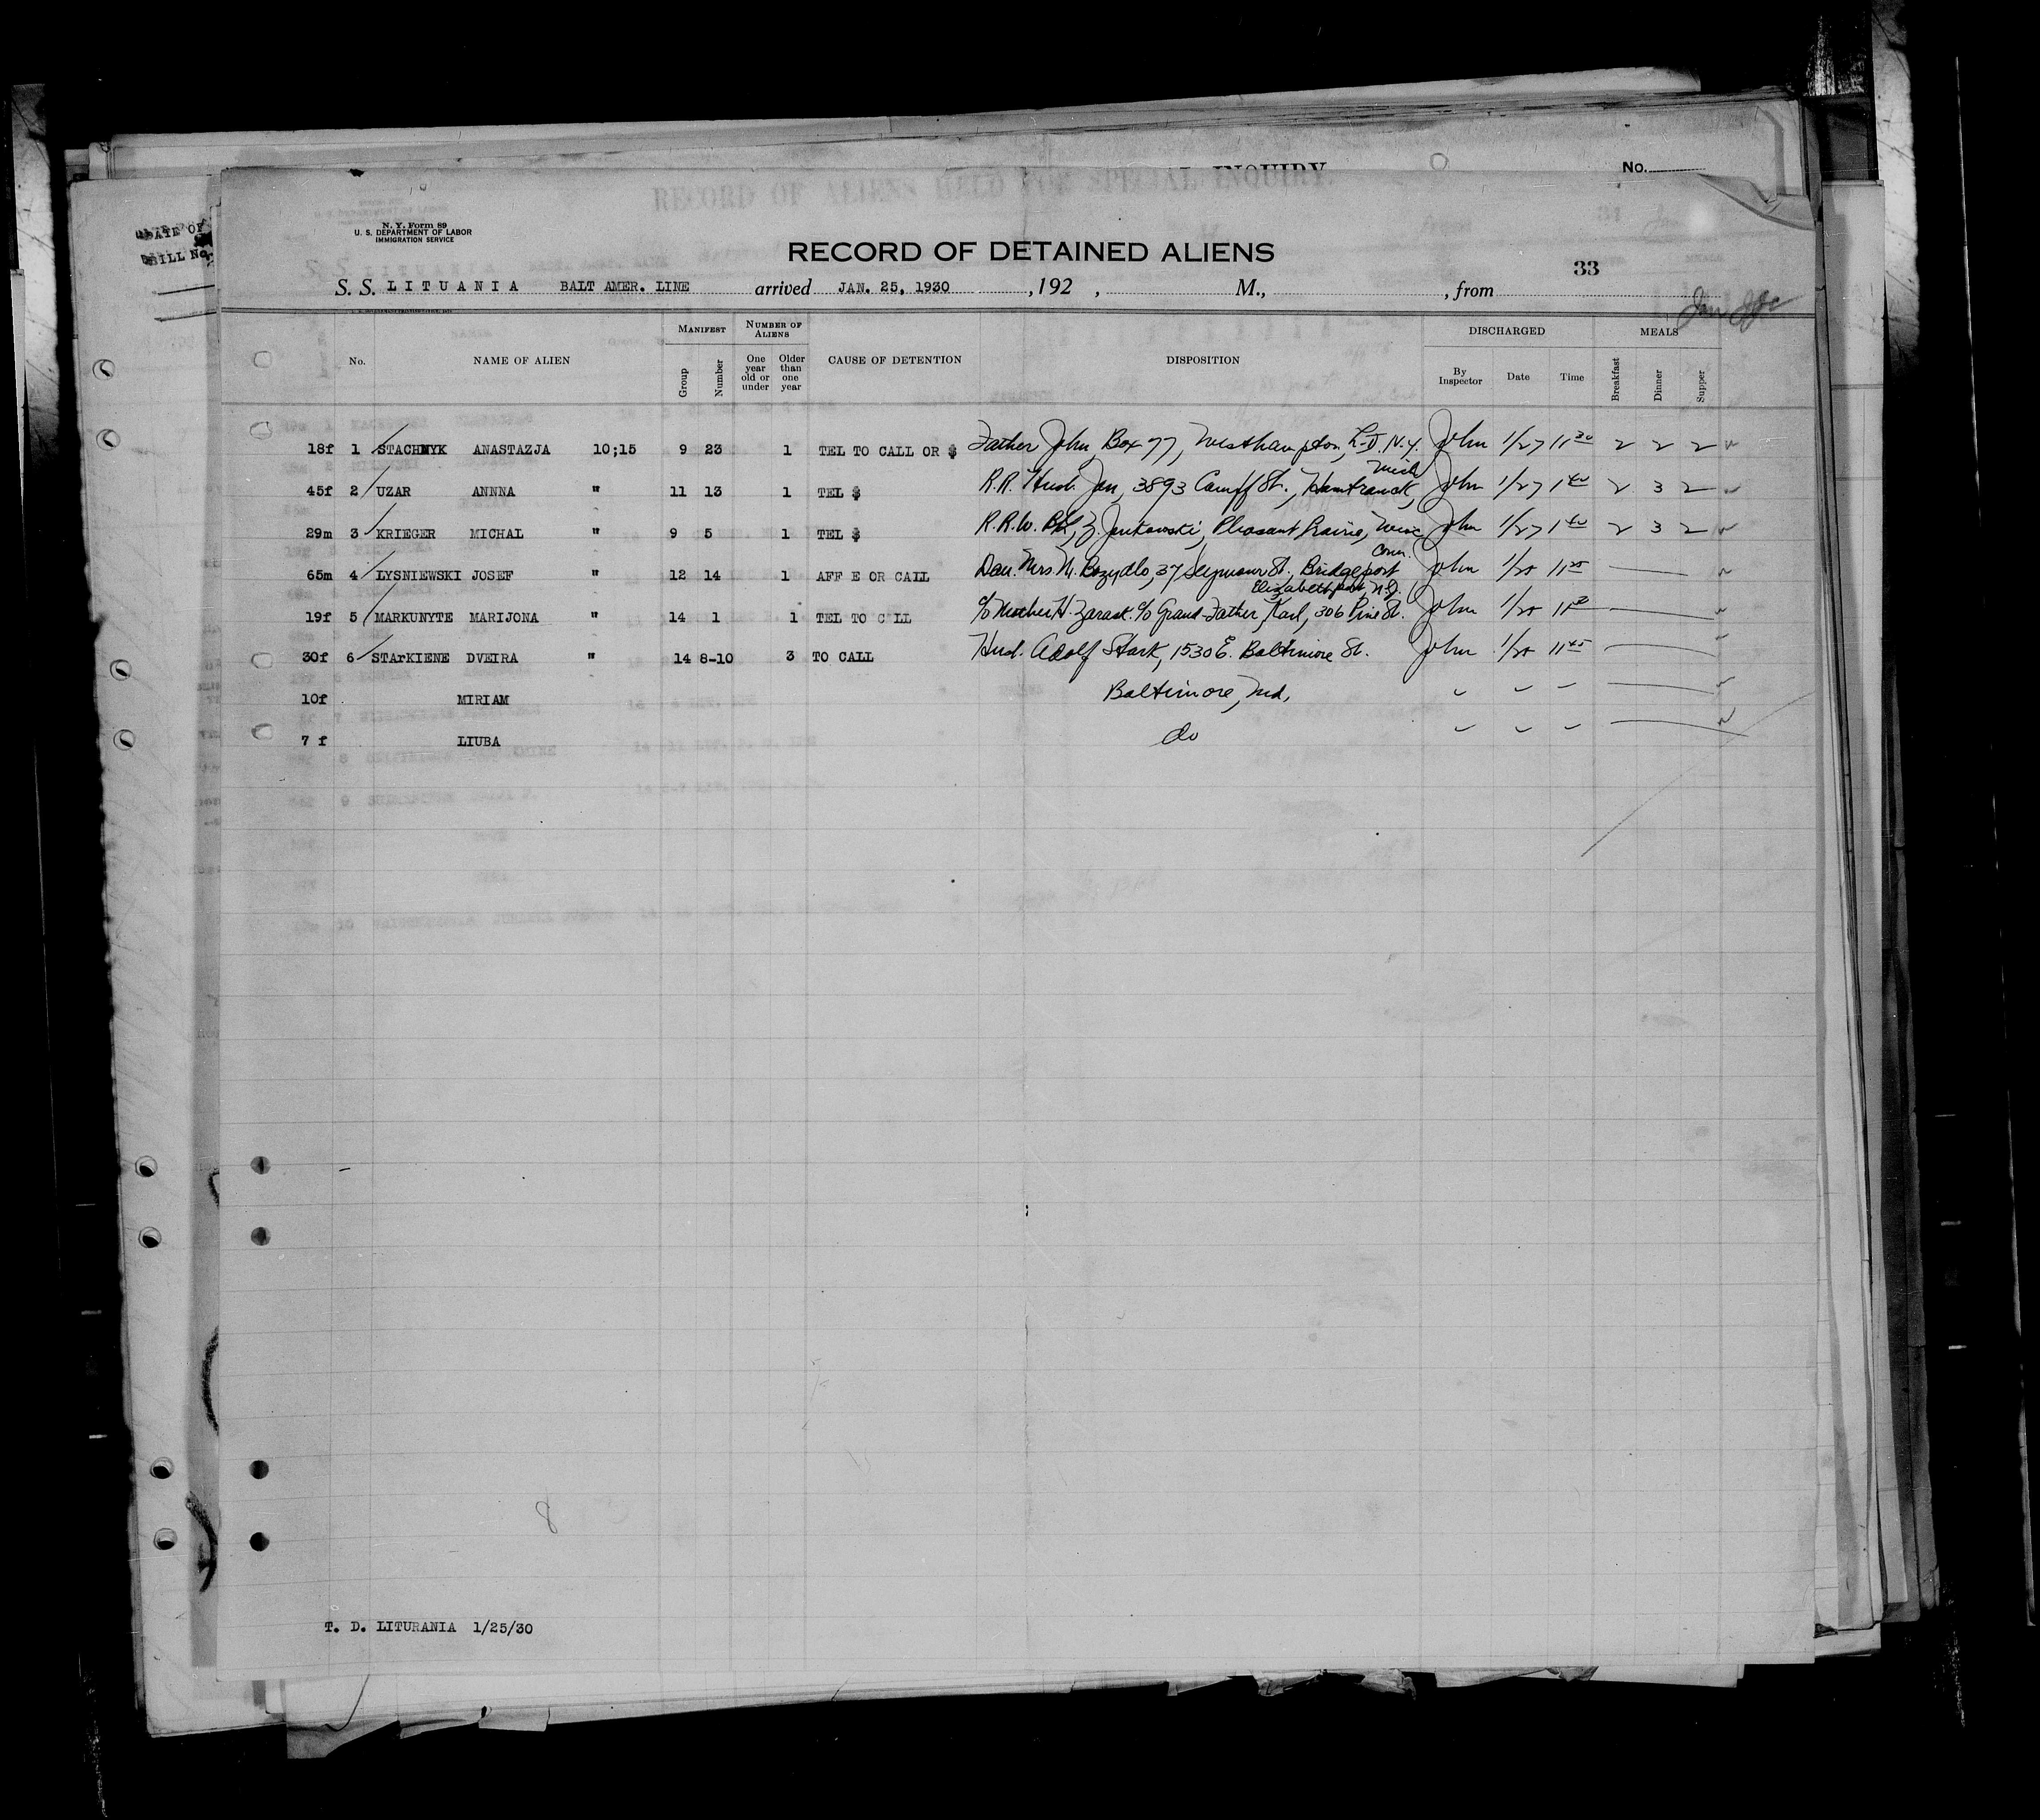 RECORD OF ALIENS HELD FOR SPECIAL INQUIRY.
No.
DATE OF
BILL No.
N. Y. Form 89
U. S. DEPARTMENT OF LABOR
IMMIGRATION SERVICE
RECORD OF DETAINED ALIENS
33
S. S. LITUANIA BALT AMER. LINE arrived JAN. 25, 1930 , 192 , M., , from
No. NAME OF ALIEN MANIFEST Group Number NUMBER OF ALIENS One year old or under Older than one year CAUSE OF DETENTION DISPOSITION DISCHARGED By Inspector Date Time MEALS Breakfast Dinner Supper
18f 1 STACHNYK ANASTAZJA 10;15 9 23 1 TEL TO CALL OR $ Father John, Box 77, Westhampton, L.I. N.Y. John 1/27 11 30 2 2 2
45f 2 UZAR ANNNA " 11 13 1 TEL $ R.R. Husb. Jan, 3893 Caniff St., Hamtramck, Mich John 1/27 1 40 2 3 2
29m 3 KRIEGER MICHAL " 9 5 1 TEL $ R.R.W. Z. Jankowski, Pleasant Prairie, Wisc John 1/27 1 40 2 3 2
65m 4 LYSNIEWSKI JOSEF " 12 14 1 AFF E OR CALL Dau. Mrs. N. Bozydlo, 37 Seymour St., Bridgeport Conn. John 1/25 11 25
19f 5 MARKUNYTE MARIJONA " 14 1 1 TEL TO C LL c/o Mother H. Zarask. c/o Grand-Father, Karl, 306 Pine St. Elizabethport, N.J. John 1/25
30f 6 STArKIENE DVEIRA " 14 8-10 3 TO CALL Husd. Adolf Stark, 1530 E. Baltimore St. John 1/25 11 45
10f MIRIAM Baltimore, Md,
7 f LIUBA do
8
T. D. LITURANIA 1/25/30